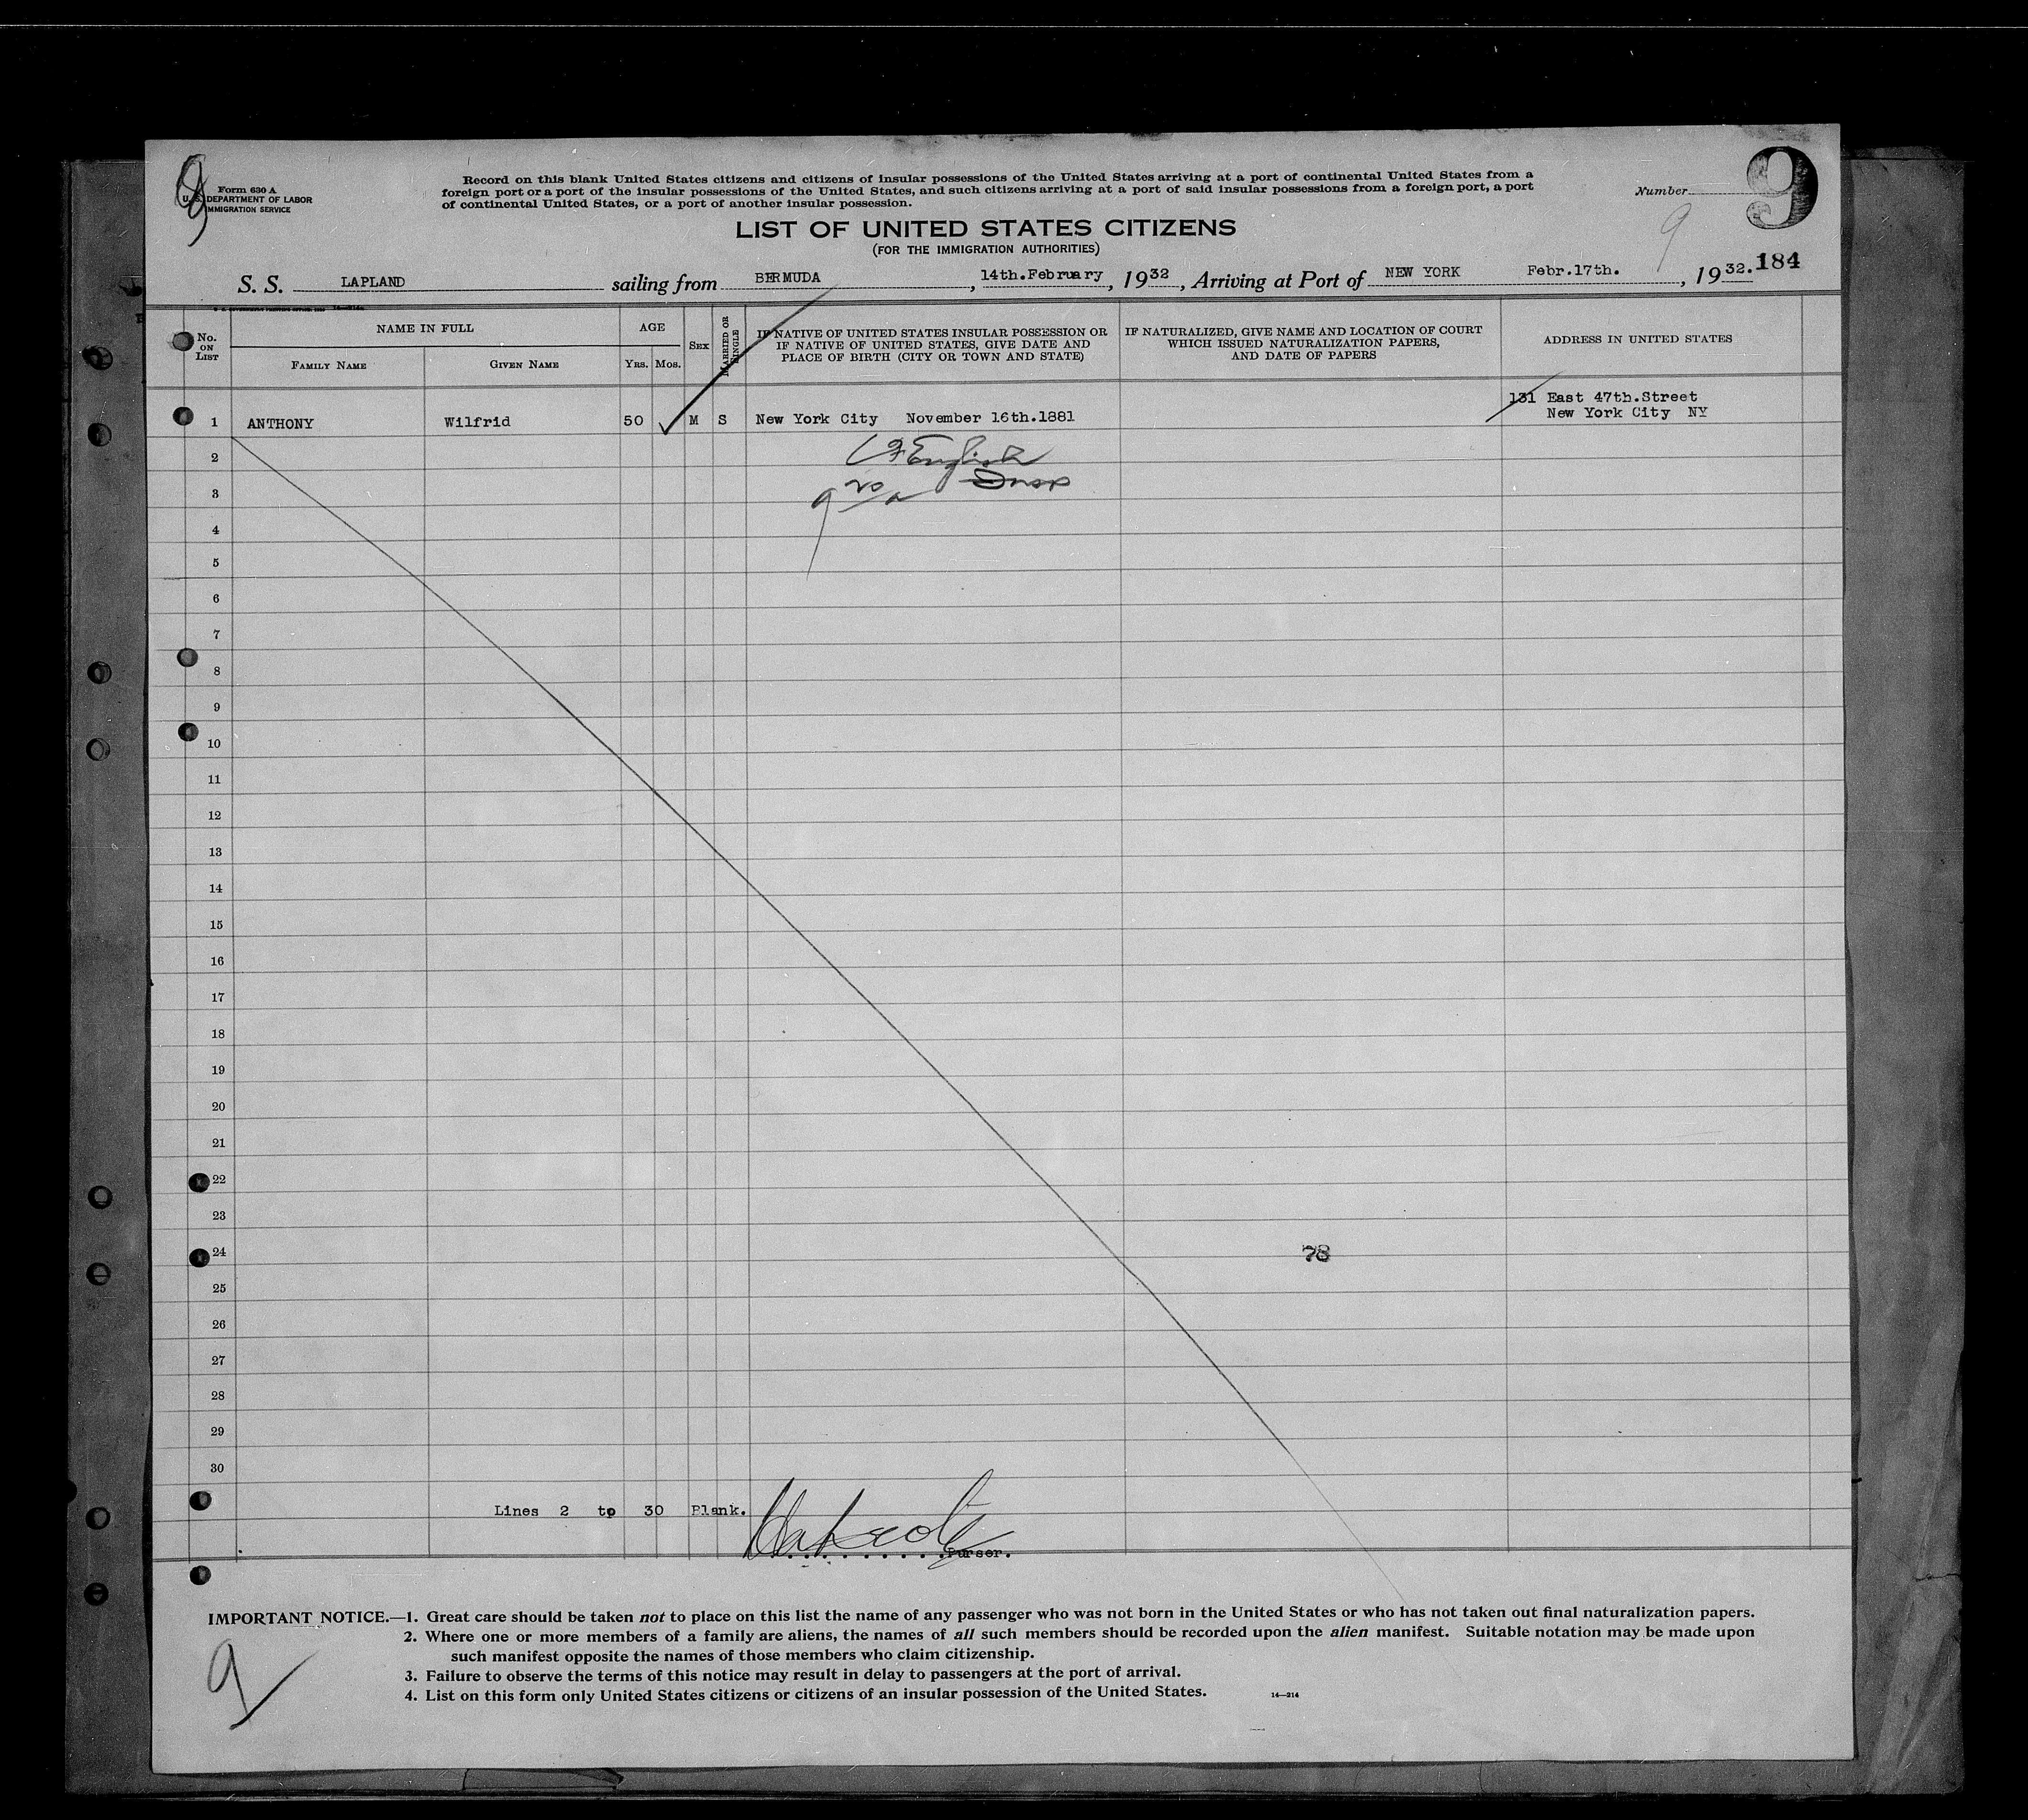 Form 630 A
U. S. DEPARTMENT OF LABOR
IMMIGRATION SERVICE
Record on this blank United States citizens and citizens of insular possessions of the United States arriving at a port of continental United States from a
foreign port or a port of the insular possessions of the United States, and such citizens arriving at a port of said insular possessions from a foreign port, a port
of continental United States, or a port of another insular possession.
Number 9
9
LIST OF UNITED STATES CITIZENS
(FOR THE IMMIGRATION AUTHORITIES)
184
S. S. LAPLAND sailing from BERMUDA, 14th.February, 1932, Arriving at Port of NEW YORK Febr.17th., 1932.
No. ON LIST
NAME IN FULL
FAMILY NAME
GIVEN NAME
AGE
YRS. MOS.
SEX
MARRIED OR SINGLE
IF NATIVE OF UNITED STATES INSULAR POSSESSION OR
IF NATIVE OF UNITED STATES, GIVE DATE AND
PLACE OF BIRTH (CITY OR TOWN AND STATE)
IF NATURALIZED, GIVE NAME AND LOCATION OF COURT
WHICH ISSUED NATURALIZATION PAPERS,
AND DATE OF PAPERS
ADDRESS IN UNITED STATES
131 East 47th.Street
1 ANTHONY Wilfrid 50 M S New York City November 16th.1881 New York City NY
English
2
3
4
5
6
7
8
9
10
11
12
13
14
15
16
17
18
19
20
21
22
23
24
78
25
26
27
28
29
30
Lines 2 to 30 Blank.
Purser.
IMPORTANT NOTICE.—1. Great care should be taken not to place on this list the name of any passenger who was not born in the United States or who has not taken out final naturalization papers.
2. Where one or more members of a family are aliens, the names of all such members should be recorded upon the alien manifest. Suitable notation may be made upon
such manifest opposite the names of those members who claim citizenship.
3. Failure to observe the terms of this notice may result in delay to passengers at the port of arrival.
4. List on this form only United States citizens or citizens of an insular possession of the United States. 14—214
9